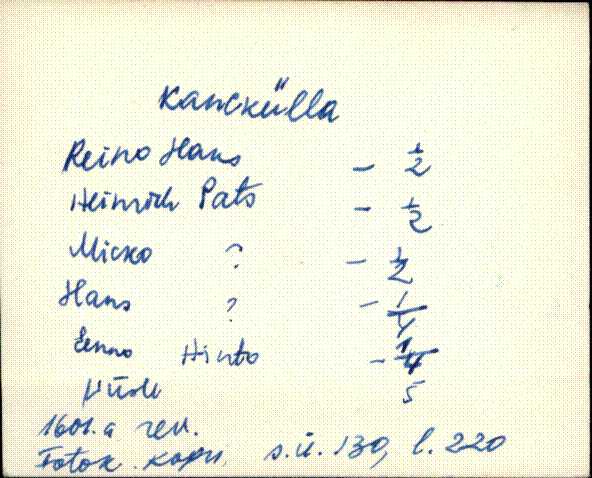 Kanckülla
Reino Hans - 1/2
Heinrich Pats - 1/2
Micko ? - 1/2
Hans ? - 1/4
Hinto - 1/4
5
1601. a rev.
Fotok. s.ü. 130, l. 220